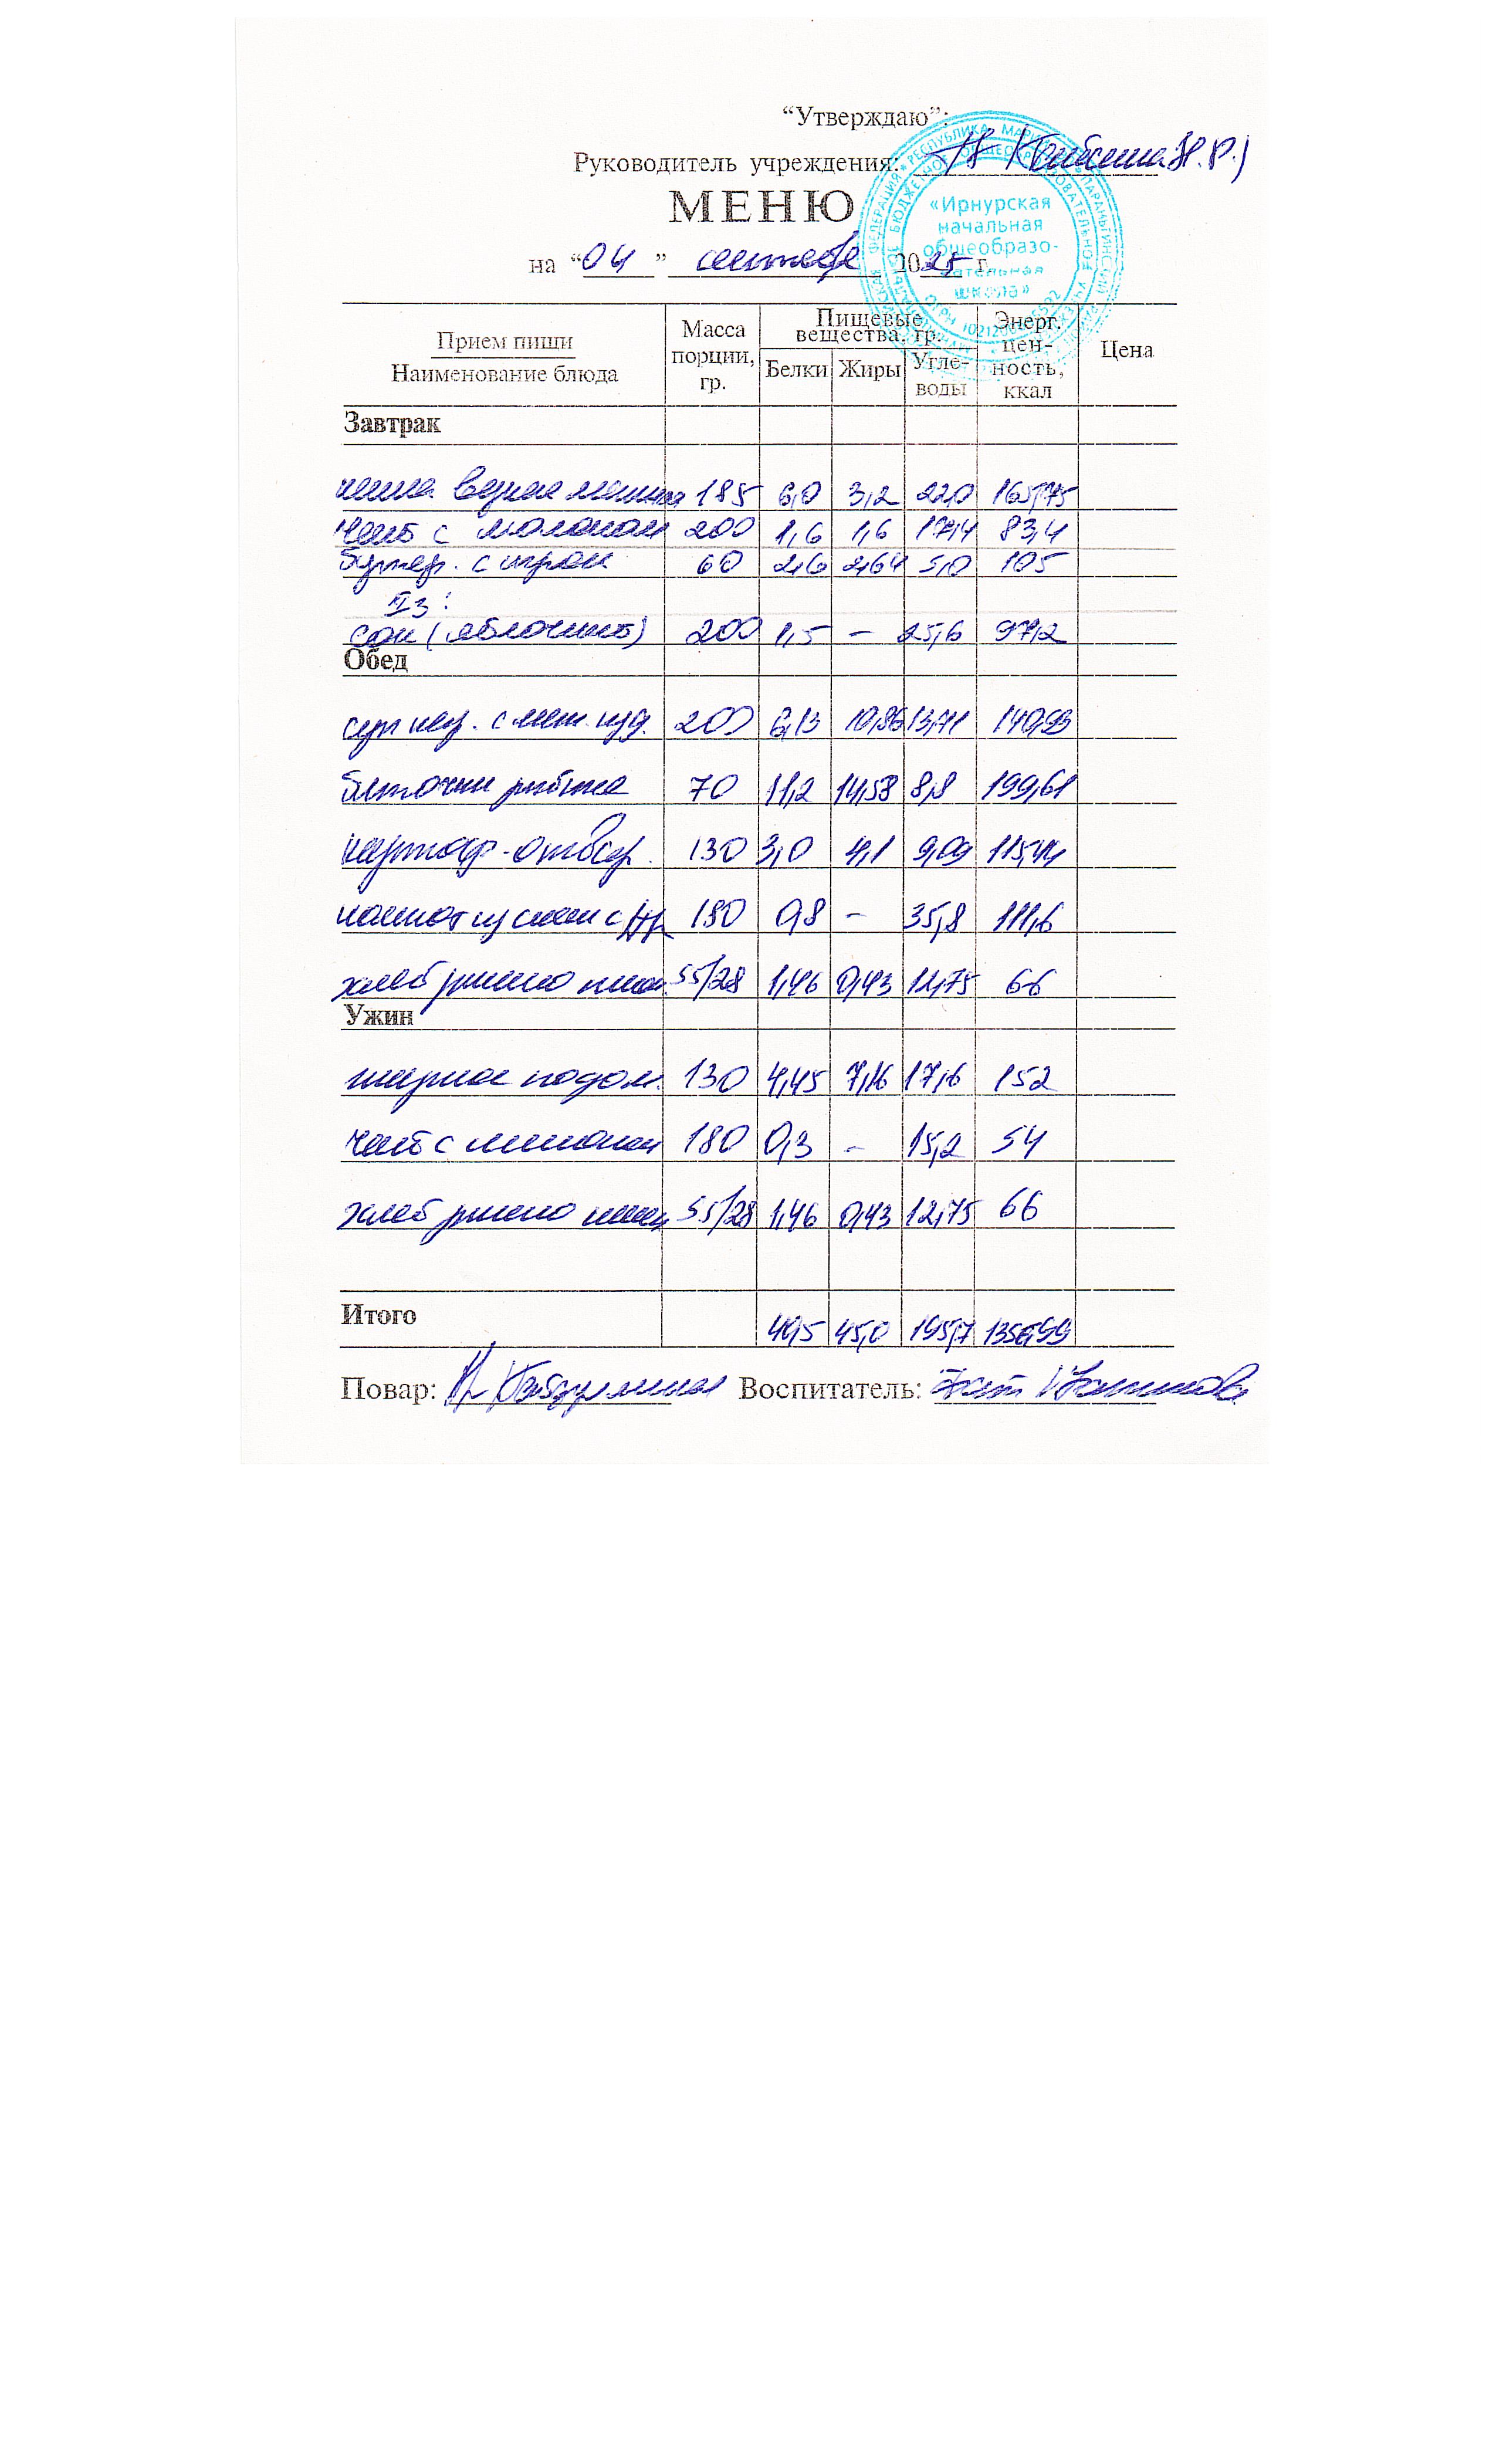 “Утверждаю”:
Руководитель учреждения:
«Ирнурская
начальная
общеобразо-
вательная
школа»
МЕНЮ
на “04” сентября 2025 г.
Прием пищи
Наименование блюда
Масса порции, гр.
Пищевые вещества, гр.
Белки Жиры Угле-воды
Энерг. цен-ность, ккал
Цена
Завтрак
каша вязкая 185 6,0 3,2 22,0 165,75
чай с молоком 200 1,6 1,6 17,4 83,4
бутер. с сыром 60 2,6 2,64 5,0 105
II з:
сок (яблочный) 200 1,5 – 25,6 97,2
Обед
суп с мак. изд. 200 6,13 10,86 13,71 140,93
биточки рыбные 70 11,2 14,58 8,8 199,61
картоф-отвар. 130 3,0 4,1 9,09 115,44
компот из смеси с/фр 180 0,8 – 35,8 111,6
хлеб ржано пшен. 55/28 1,46 0,43 12,75 66
Ужин
жаркое по дом. 130 4,45 7,16 17,6 152
чай с лимоном 180 0,3 – 15,2 54
хлеб ржано пшен 55/28 1,46 0,43 12,75 66
Итого 40,5 45,0 195,7 1356,99
Повар: Воспитатель: